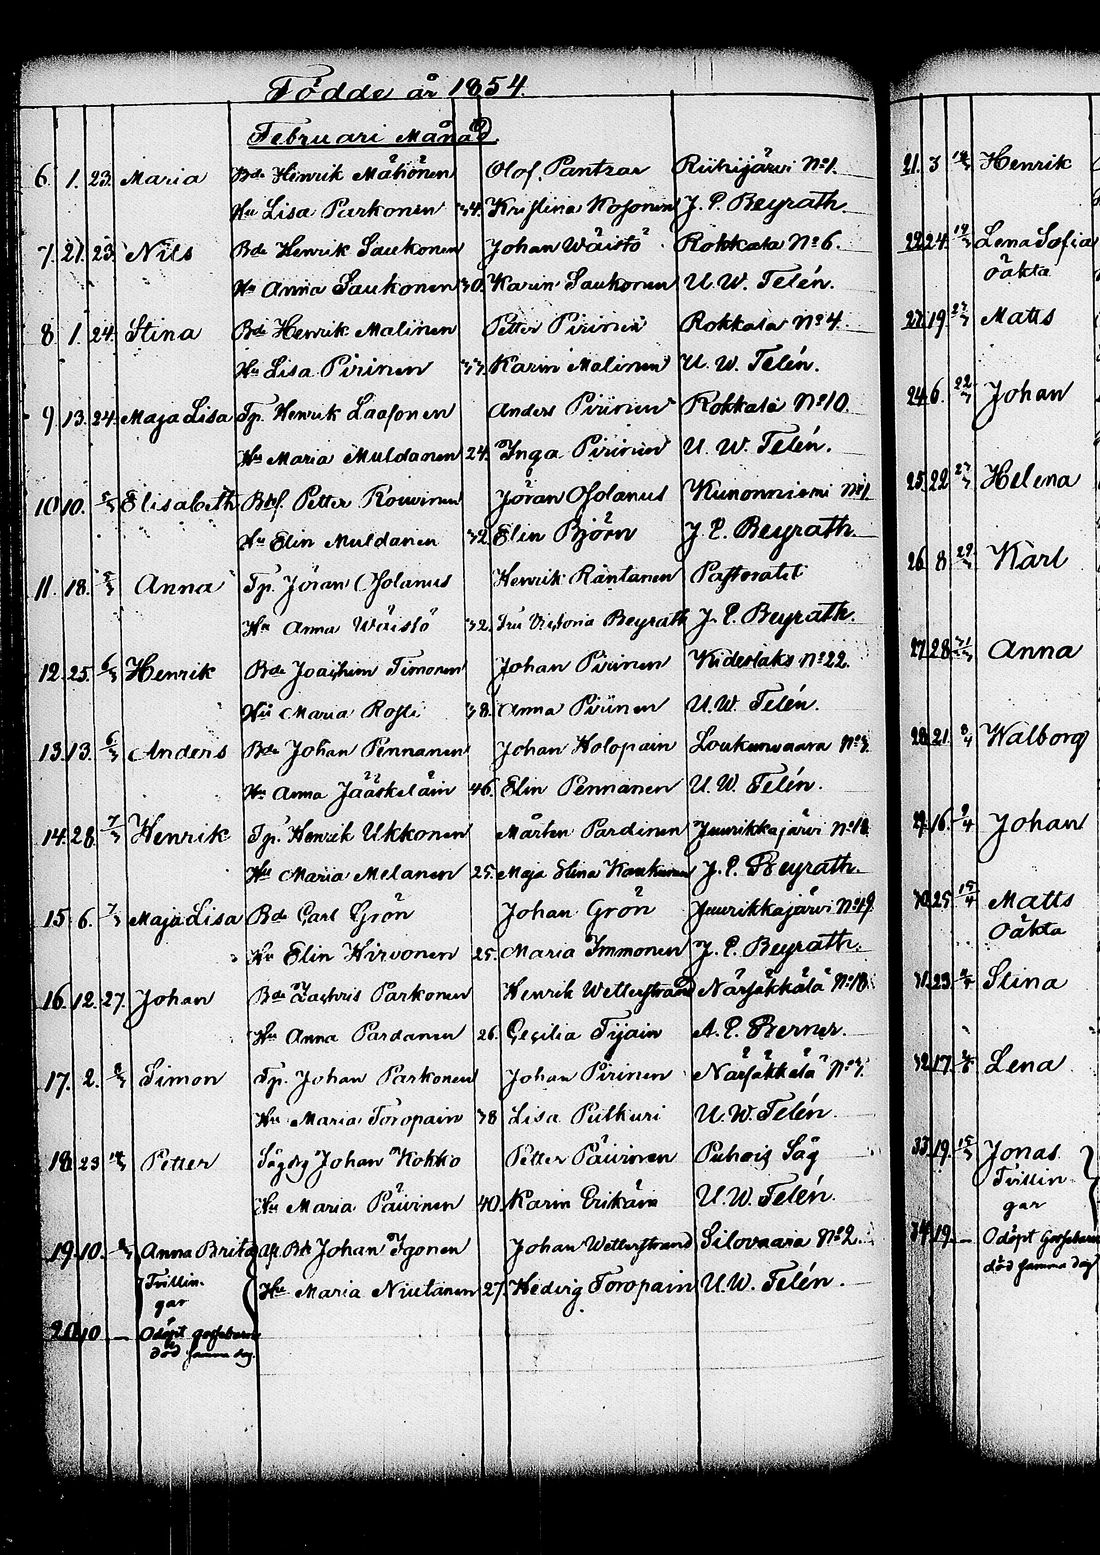 Födde år 1854.
Februari Månad.
6. 1. 23. Maria Bde Henrik Mähönen Olof Pantzar Riihijärvi No 1.
Hu Lisa Parkonen 34. Kristina Kosonen J. P. Beyrath.
7. 21. 23. Nils Bde Henrik Saukonen Johan Wäistö Rokkala No 6.
Hu Anna Saukonen 30. Karin Saukonen U. W. Telén.
8. 1. 24. Stina Bde Henrik Malinen Petter Pirinen Rokkala No 4.
Hu Lisa Pirinen 33. Karin Malinen U. W. Telén.
9. 13. 24. Maja Lisa Tp. Henrik Laasonen Anders Pirinen Rokkala No 10.
Hu Maria Muldanen 24. Inga Pirinen U. W. Telén.
10. 10. 5/3 Elisabeth Petter Rouvinen Jöran Solanus Kunonniemi No 1
Hu Elin Muldanen 32. Elin Björn J. P. Beyrath.
11. 18. 5/3 Anna Tp. Jöran Solanus Henrik Räntanen Pastoratet
Hu Anna Wäistö 32. Fru Victoria Beyrath J. P. Beyrath.
12. 25. 6/3 Henrik Bde Joachim Timonen Johan Pirinen Kideslaks No 22.
Hu Maria Rosti 38. Anna Pirinen U. W. Telén.
13. 13. 6/3 Anders Bde Johan Pennanen Johan Holopain Loukunvaara No 3.
Hu Anna Jääskeläin 46. Elin Pennanen U. W. Telén.
14. 28. 7/3 Henrik Tp. Henrik Ukkonen Mårten Pardinen Juurikkajärvi No 18.
Hu Maria Melanen 25. Maja Stina J. P. Beyrath.
15. 6. 7/3 Maja Lisa Bde Carl Grön Johan Grön Juurikkajärvi No 19.
Hu Elin Hirvonen 25. Maria Immonen J. P. Beyrath.
16. 12. 27. Johan Bde Zachris Parkonen Henrik Wetterstrand Närsäkkälä No 18.
Hu Anna Pardanen 26. Cecilia Tijain A. P. Berner.
17. 2. 8/3 Simon Tp. Johan Parkonen Johan Pirinen Närsäkkälä No 3.
Hu Maria Toropain 38 Lisa Pulkuri U. W. Telén.
18. 23 Petter Sågdg Johan Kokko Petter Päivinen Puhois Såg
Hu Maria Päivinen 40. Karin Erikäin U. W. Telén.
19. 10. Anna Brita Johan Igonen Johan Wetterstrand Silovaara No 2.
Tvillin- Hu Maria Niutanen 27. Hedvig Toropain U. W. Telén.
gar
20. 10 — Odöpt gossebarn
död samma dag.
21. 3 Henrik
22. 24. Lena Sofia
oäkta
19 Matts
24. 6. Johan
25. 22 Helena
26. 8 Karl
27. 28 Anna
28. 21. Walborg
29. 16. 9/4 Johan
30. 25 Matts
oäkta
31. 23. Stina
32. 17. Lena
33. 19. Jonas
Tvillin-
gar
34. 19. — Odöpt Gossebarn
död samma dag